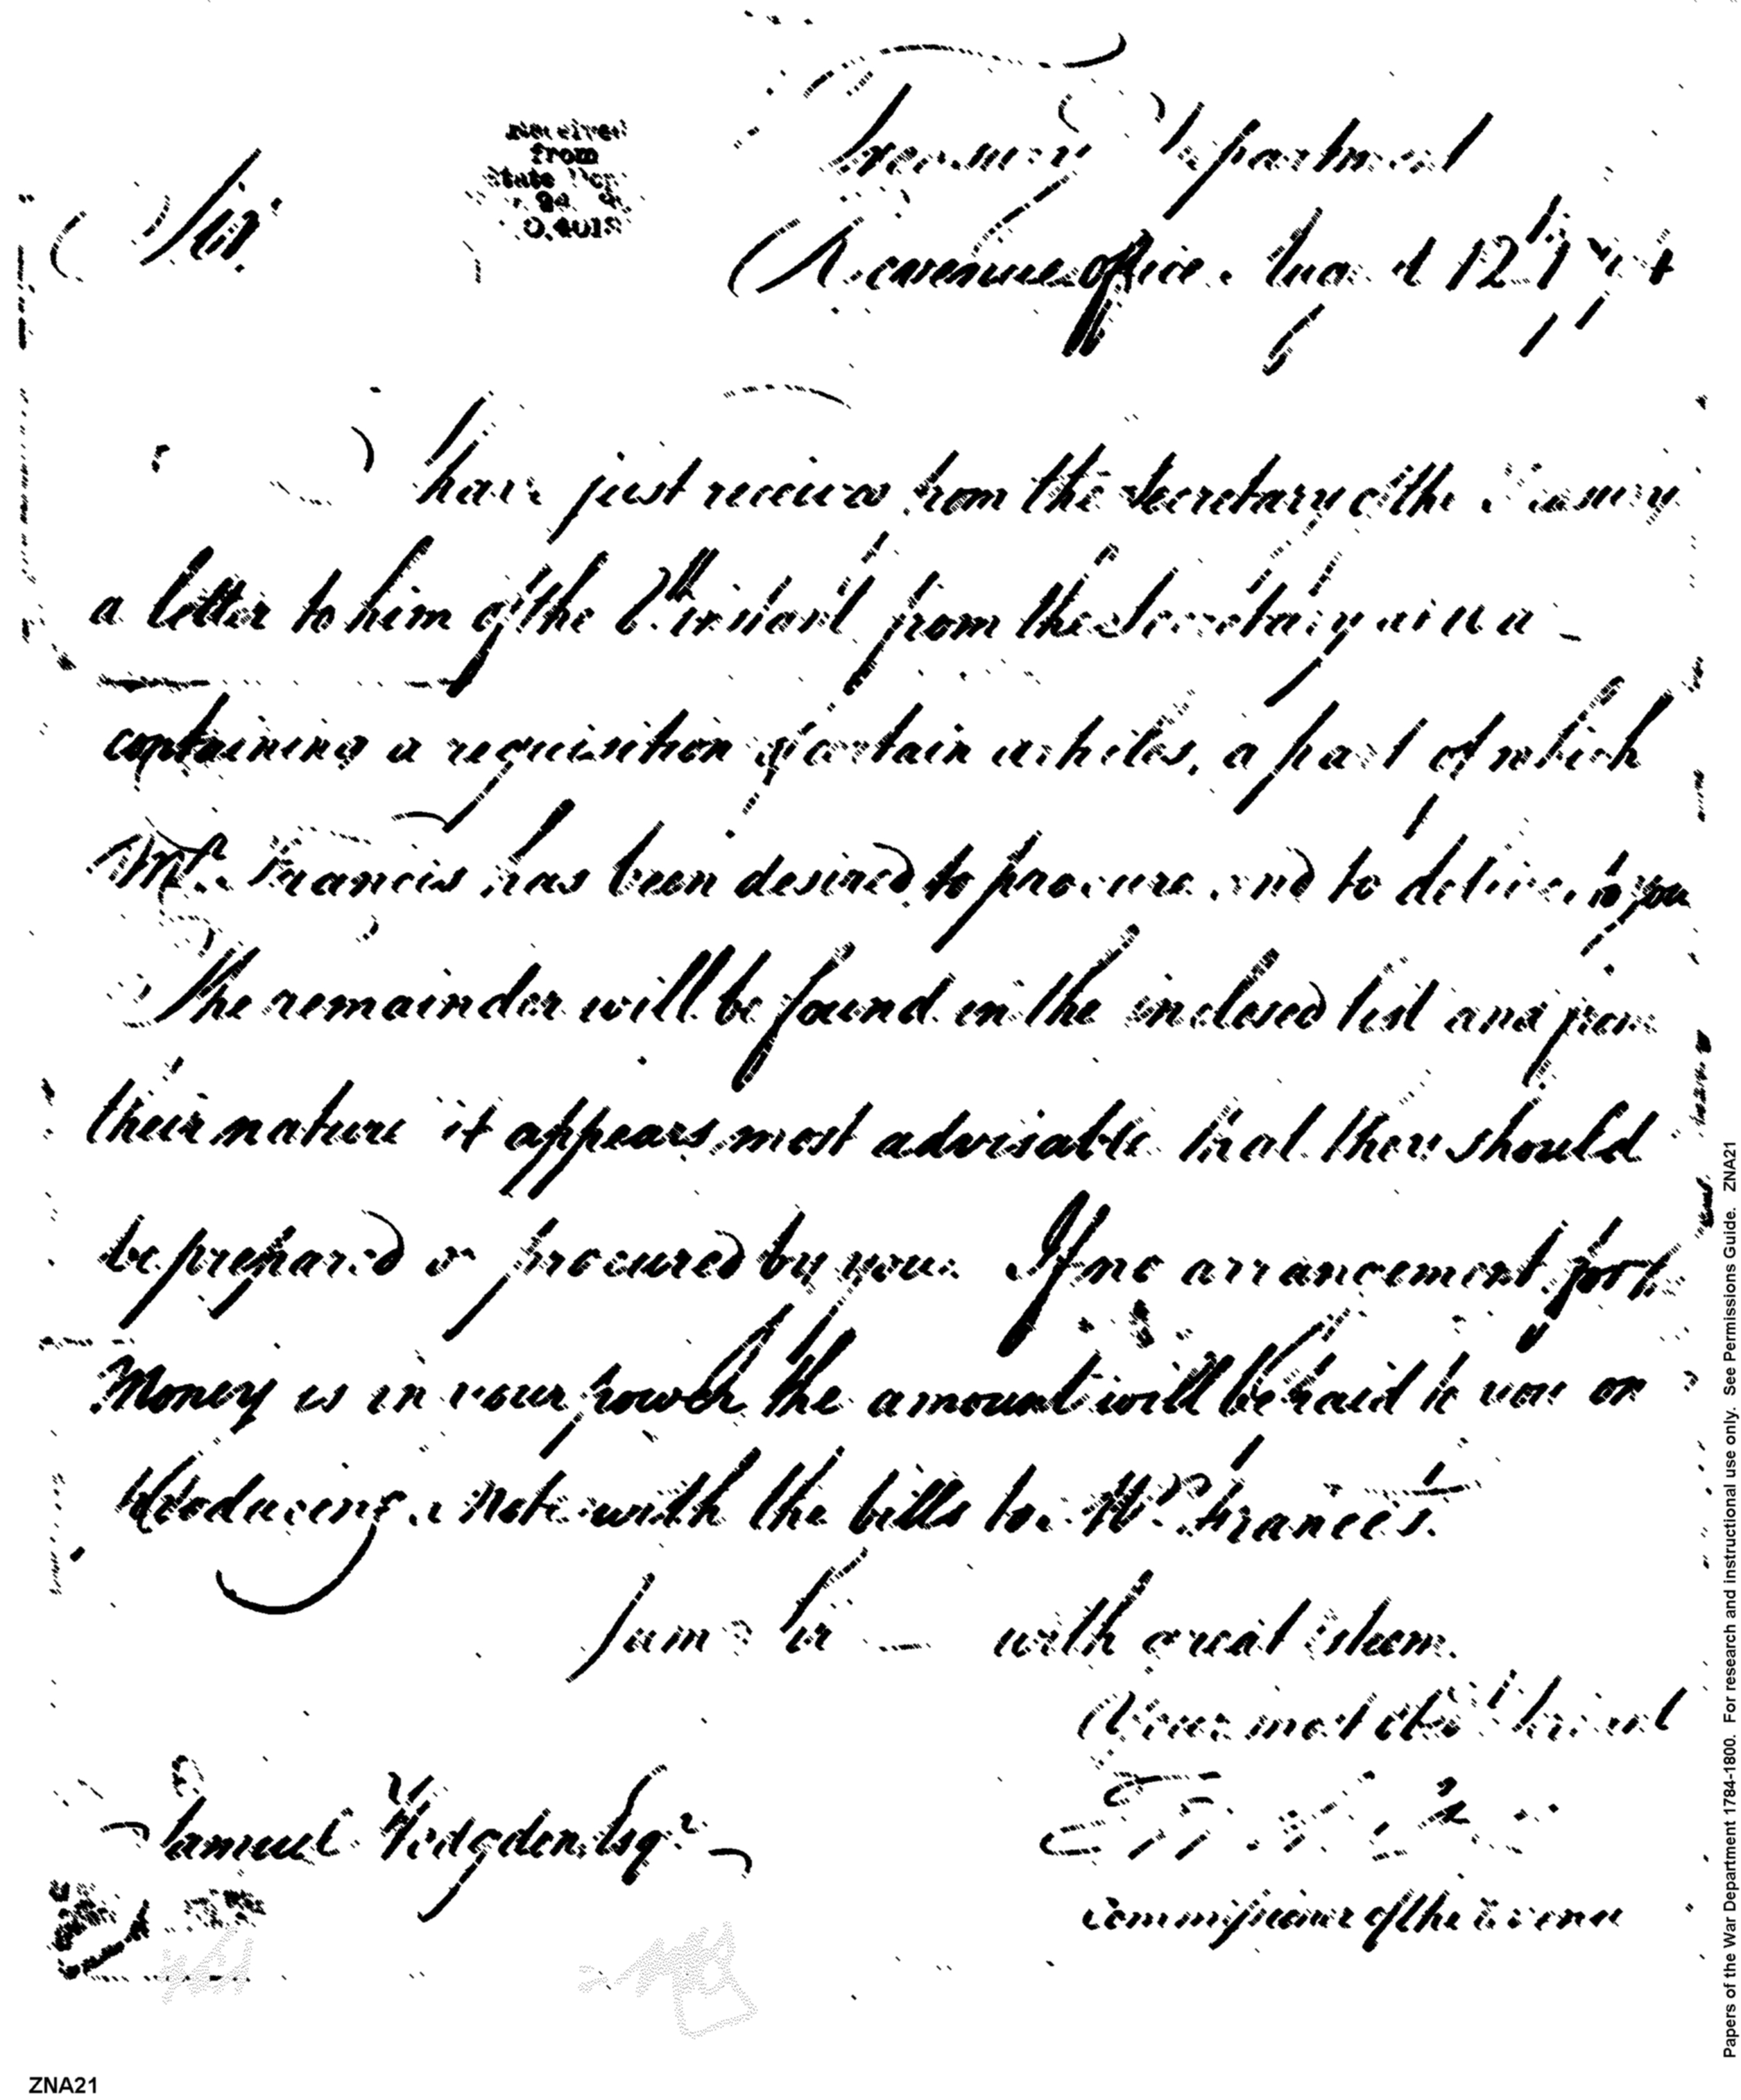 Received
from
State Dep
0.4018
Treasury Department
Revenue office. August 12th 1794
Sir
I have just received from the Secretary of the Treasury
a letter to him of the instant from the Secretary at War
containing a requisition of certain articles, a part of which
Mr. Francis has been desired to procure and to deliver to you
The remainder will be found in the inclosed list and from
their nature it appears most advisable that they should
be prepared or procured by you. If no arrangement for the
Money is in your power the amount will be paid to you on
producing a note with the bills to Mr. Francis.
I am Sir — with great esteem.
Your most obt Servant
Samuel Hodgden Esqr
Commissioner of the Revenue
Papers of the War Department 1784-1800. For research and instructional use only. See Permissions Guide. ZNA21
ZNA21